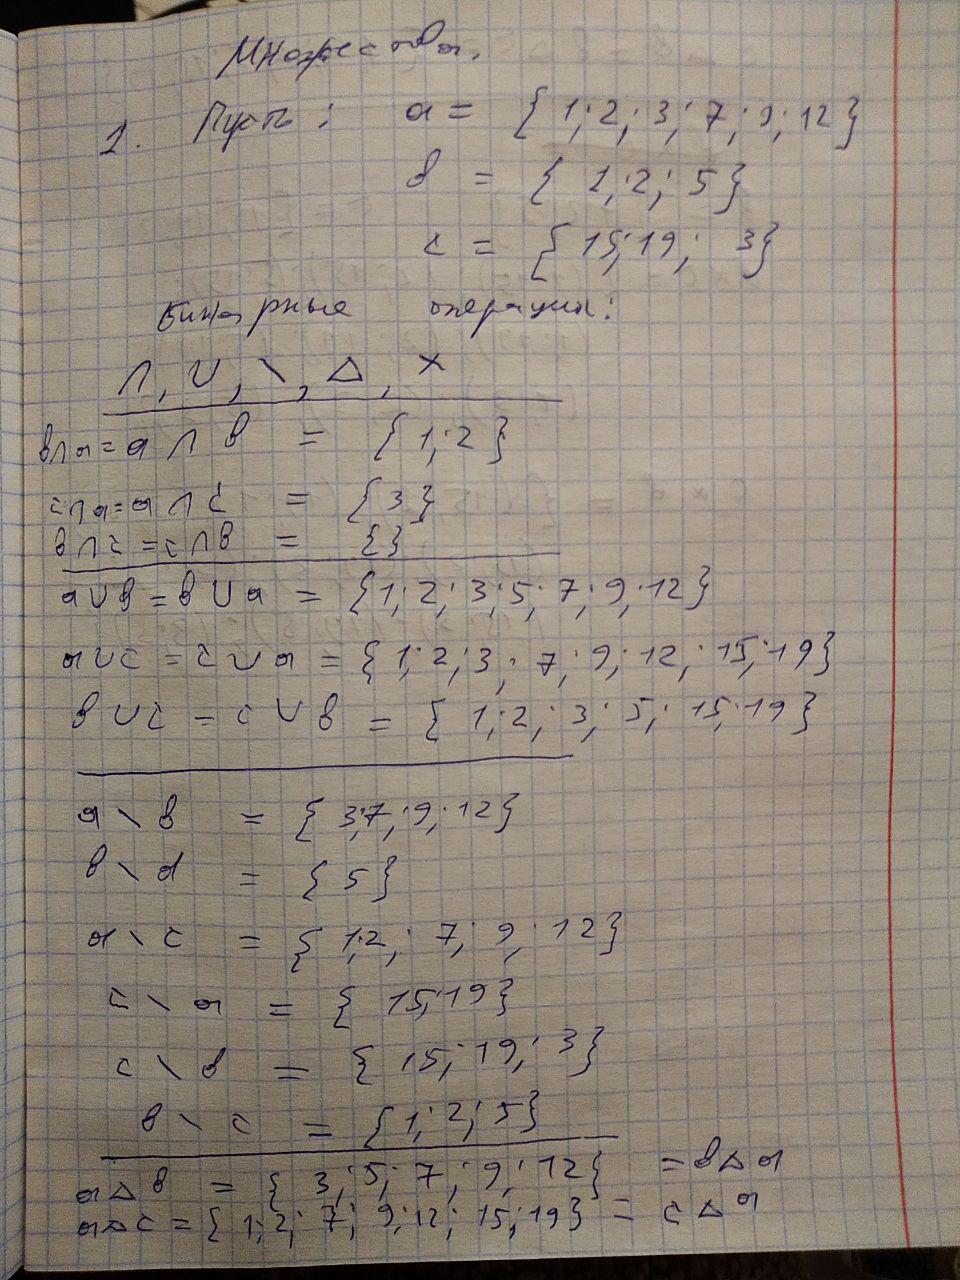 Множества.
1. Пусть: a = { 1; 2; 3; 7; 9; 12}
b = { 1; 2; 5}
c = { 15; 19; 3}
Бинарные операции:
∩, ∪, \, △, ×
b∩a = a ∩ b = { 1; 2 }
c∩a = a ∩ c = { 3 }
b∩c = c∩b = { }
a∪b = b∪a = {1; 2; 3; 5; 7; 9; 12}
a∪c = c∪a = {1; 2; 3; 7; 9; 12; 15; 19}
b∪c = c∪b = { 1; 2; 3; 5; 15; 19}
a \ b = { 3; 7; 9; 12}
b \ a = { 5 }
a \ c = { 1; 2; 7; 9; 12}
c \ a = { 15; 19}
c \ b = { 15; 19; 3}
b \ c = {1; 2; 5}
a△b = { 3; 5; 7; 9; 12} = b△a
a△c = { 1; 2; 7; 9; 12; 15; 19} = c△a